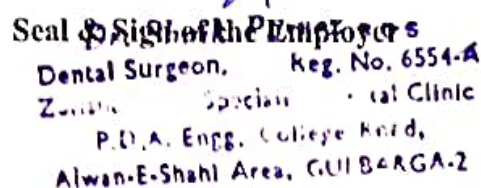 Seal & Sign of the Employers
Dental Surgeon, Reg. No. 6554-A
Clinic
P.D.A. Engg. College Road,
Aiwan-E-Shahi Area, GULBARGA-2